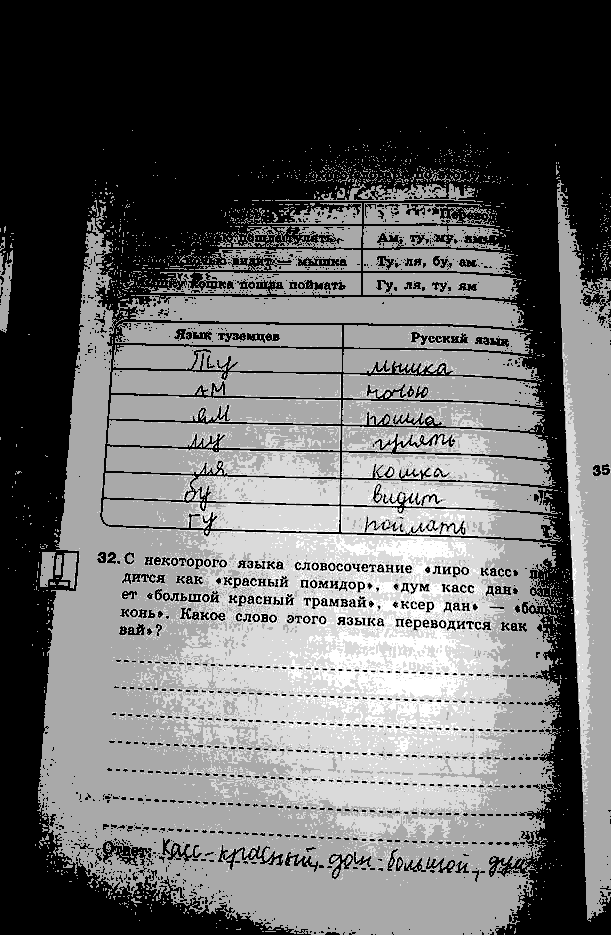 Ам, ту, му,
видит — мышка Ту, ля, бу, ам
кошка пошла поймать Гу, ля, ту, ям
Язык туземцев Русский язык
Ту мышка
ам ночью
ям пошла
му гулять
ля кошка
бу видит
гу поймать
35
32. С некоторого языка словосочетание «лиро касс»
дится как «красный помидор», «дум касс дан»
ет «большой красный трамвай», «ксер дан» —
конь». Какое слово этого языка переводится как
вай»?
Ответ: Касс - красный, дан - большой,